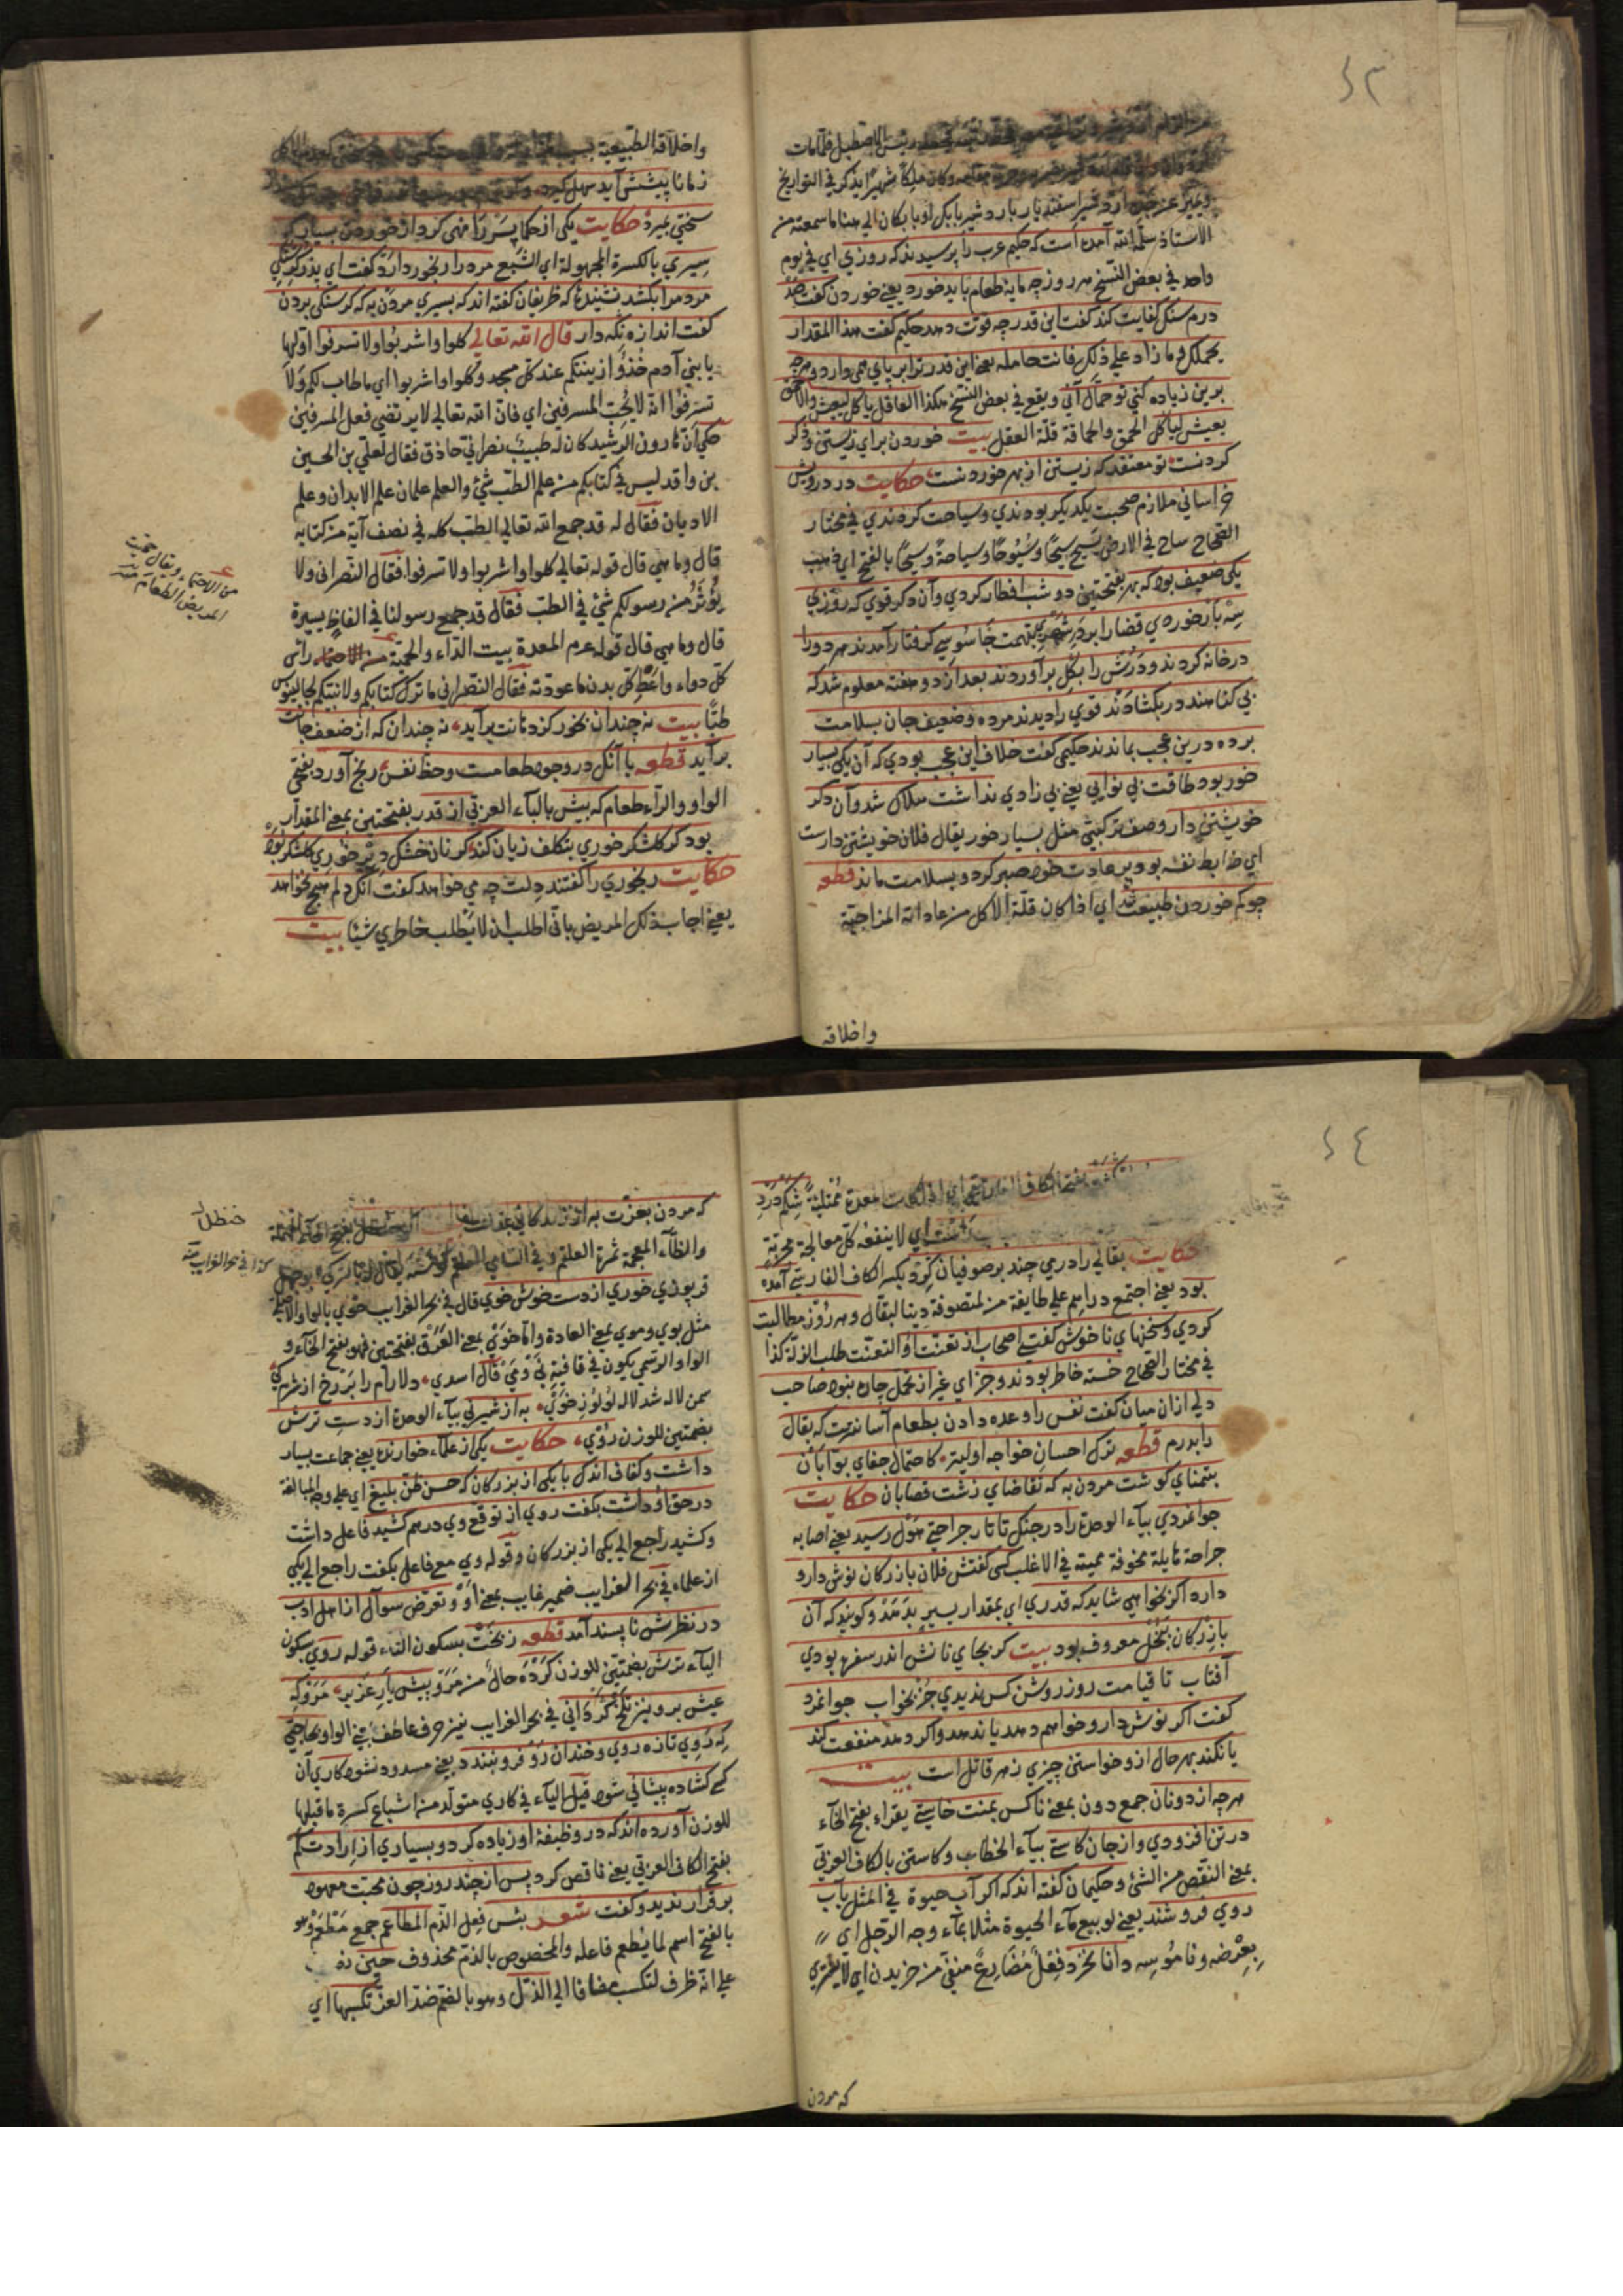 رئيس الاصطبل فلما مات
وكان ملكا شهيرا يذكر في التواريخ
ويميز عن جده اردشير اسفنديار باردشير بابك او بابكان الي هنا ما سمعته من
الاستاذ سلمه الله آمده است كه حكيم عرب را پرسيدند كه روزي اي في يوم
واحد في بعض النسخ هر روز چه مايه طعام بايد خورد يعني خوردن كفت صد
درم سنك كفايت كند كفت اين قدر چه قوت دهد حكيم كفت هذا المقدار
يحملك وما زاد علي ذلك فانت حامله يعني اين قدر ترا بر پاي همي دارد و هر چه
برين زياده كني تو حمال آني ويقع في بعض النسخ هكذا العاقل ياكل ليعيش والاحمق
يعيش لياكل الحمق والحماقة قلة العقل بيت خوردن براي زيستن وذكر
كردنست تو معتقد كه زيستن از بهر خوردنست حكايت دو درويش
خراساني ملازم صحبت يكديكر بودندي وسياحت كردندي في مختار
الصحاح ساح في الارض يسيح سيحا وسيوحا وسياحة وسيحا بالفتح اي ذهب
يكي ضعيف بود كه بهر بفتحتين دو شب افطار كردي وآن دكر قوي كه روزي
سه بار خوردي قضا را بر در شهري بتهمت جاسوسي كرفتار آمدند هر دو را
در خانه كردند و درش را بكل برآوردند بعد از دو هفته معلوم شد كه
بي كناهند در بكشادند قوي را ديدند مرده وضعيف جان بسلامت
برده درين عجب بماندند حكيمي كفت خلاف اين عجب بودي كه آن يكي بسيار
خور بود طاقت بي نوايي يعني بي زادي نداشت هلاك شد وآن دكر
خويشتن دار وصف تركيبي مثل بسيار خور يقال فلان خويشتن دارست
اي ضابط نفسه بود بر عادت خود صبر كرد و بسلامت ماند قطعه
چو كم خوردن طبيعت شد اي اذا كان قلة الاكل من عاداته المزاجية
واخلاقه
واخلاقه الطبيعية
زمانا پيشش آيد سهل كيرد
سختي بميرد حكايت يكي از حكما پسر را نهي كرد از خوردن بسيار كه
سيري بالكسرة المجهولة اي الشبع مرد را رنجور دارد كفت اي پدر كرسنكي
مردم را بكشد نشنيدۀ كه ظريفان كفته اند كه بسيري مردن به كه كرسنكي بردن
كفت اندازه نكه دار قال الله تعالي كلوا واشربوا ولا تسرفوا اولها
يا بني آدم خذوا زينتكم عند كل مسجد وكلوا واشربوا اي ما طاب لكم ولا
تسرفوا انه لا يحب المسرفين اي فان الله تعالي لا يرتضي فعل المسرفين
حكي ان هارون الرشيد كان له طبيب نصراني حاذق فقال لعلي بن الحسين
بن واقد ليس في كتابكم من علم الطب شئ والعلم علمان علم الابدان وعلم
الاديان فقال له قد جمع الله تعالي الطب كله في نصف آية من كتابه
قال وما هي قال قوله تعالي كلوا واشربوا ولا تسرفوا فقال النصراني ولا
يؤثر من رسولكم شئ في الطب فقال قد جمع رسولنا في الفاظ يسيرة
قال وما هي قال قوله عم المعدة بيت الداء والحمية رأس
كل دواء واعط كل بدن ما عودته فقال النصراني ما ترك كتابكم ولا نبيكم لجالينوس
طبا بيت نه چندان بخور كز دهانت برآيد نه چندان كه از ضعف جانت
برآيد قطعه با آنكه در وجود طعامست وحظ نفس رنج آورد بفتحي
الواو والراء طعام كه بيش بالباء العربي از قدر بفتحتين بمعني المقدار
بود كر كلشكر خوري بتكلف زيان كند كر نان خشك دير خوري كلشكر بود
حكايت رنجوري را كفتند دلت چه مي خواهد كفت آنكه دلم هيچ نخواهد
يعني اجاب ذلك المريض باني اطلب ان لا يطلب خاطري شيئا بيت
من الاحتماء ويقال حميت
المريض الطعام منه
بفتح الكاف الفارسية اي اذا كانت معدة ممتلئة شكم درد
اي لا ينفعه كل معالجة مجربة
حكايت بقالي را درمي چند بر صوفيان كرد بكسر الكاف الفارسي آمده
بود يعني اجتمع دراهم علي طايفة من المتصوفة دينا لبقال وهر روز مطالبت
كردي و سخنهاي ناخوش كفتي اصحاب از تعنت او التعنت طلب الزلة كذا
في مختار الصحاح خسته خاطر بودند وجز اي غير از تحمل چاره نبود صاحب
دلي ازان ميان كفت نفس را وعده دادن بطعام آسانترست كه بقال
را بدرم قطعه ترك احسان خواجه اوليتر كاحتمال جفاي بوابان
بتمناي كوشت مردن به كه تقاضاي زشت قصابان حكايت
جوانمردي بياء الوحدة را در جنك تاتار جراحتي هول رسيد يعني اصابه
جراحة هايلة مخوفة مميتة في الاغلب كسي كفتش فلان بازركان نوش دارو
دارد اكر بخواهي شايد كه قدري اي بمقدار يسير بدهد و كويند كه آن
بازركان ببخل معروف بود بيت كر بجاي نانش اندر سفره بودي
آفتاب تا قيامت روز روشن كس نديدي جز بخواب جوانمرد
كفت اكر نوش دارو خواهم دهد يا ندهد واكر دهد منفعت كند
يا نكند بهر حال ازو خواستن چيزي زهر قاتل است بيت
هر چه از دونان جمع دون بمعني ناكس بمنت خاستي يقراء بفتح الخاء
در تن افزودي و از جان كاستي بياء الخطاب و كاستن بالكاف العربي
بمعني النقص من الشئ و حكيمان كفته اند كه اكر آب حيوة في المثل بآب
روي فروشند يعني لو بيع ماء الحيوة مثلا بماء وجه الرجل اي
بعرضه وناموسه دانا نخرد فعل مضارع منفي من خريدن اي لا يشتري
كه مردن
كه مردن بعزت به از زندكاني بمذلت
والظاء المعجمة ثمرة العلقم وفي السامي
خوري از دست خوش خوي قال في بحر الغرايب خوي بالواو الاصلي
مثل بوي وموي بمعني العادة واما خوي بمعني العرق بفتحتين فهو بفتح الخاء و
الواو الرسمي يكون في قافية پي و مي قال اسدي دلارام را پر ز رخ از شرم كي
سمن لاله شد لاله لؤلؤ ز خوي به از شيريني بياء الوحدة از دست ترش
بضمتين للوزن روي حكايت يكي از علماء خوارنده يعني جماعت بسيار
داشت و كفاف اندك با يكي از بزركان كه حسن ظن بليغ اي علي وجه المبالغة
در حق او داشت بكفت روي از توقع وي درهم كشيد فاعل داشت
وكشيد راجع الي يكي از بزركان و قوله وي مع فاعل بكفت راجع الي يكي
از علماء في بحر الغرايب ضمير غايب بمعني او و تعرض سوآل از اهل ادب
در نظرش ناپسند آمد قطعه ز بخت بسكون التاء قوله روي بسكون
الياء ترش بضمتين للوزن كرده حال من مرو پيش يار عزيز مرو كه
عيش برو نيز تلخ كرداني في بحر الغرايب نيز حرف عاطف بمعني الواو بحاجتي
كه روي تازه روي و خندان رو فرو نبندد يعني مسدود نشود كاري آن
كه كشاده پيشاني شود قيل الياء في كاري متولد من اشباع كسرة ما قبلها
للوزن آورده اند كه در وظيفۀ او زياده كرد و بسياري از ارادت كم
بفتح الكاف العربي يعني ناقص كرد پس از چند روز چون محبت معهود
برقرار نديد و كفت شعر بئس فعل الذم المطاعم جمع مطعم وهو
بالفتح اسم لما يطعم فاعله والمخصوص بالذم محذوف حين
علي انه ظرف لتكسب مضافا الي الذل وهو بالضم ضد العز تكسبها اي
حنظل
كذا في بحر الغرايب منه